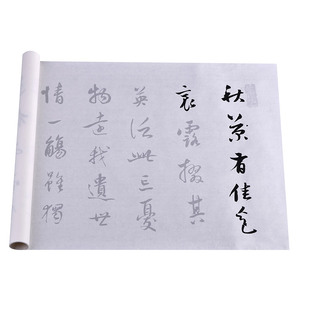 秋菊有佳色
裛露掇其
英泛此忘憂
物遠我遺世
情一觴雖獨